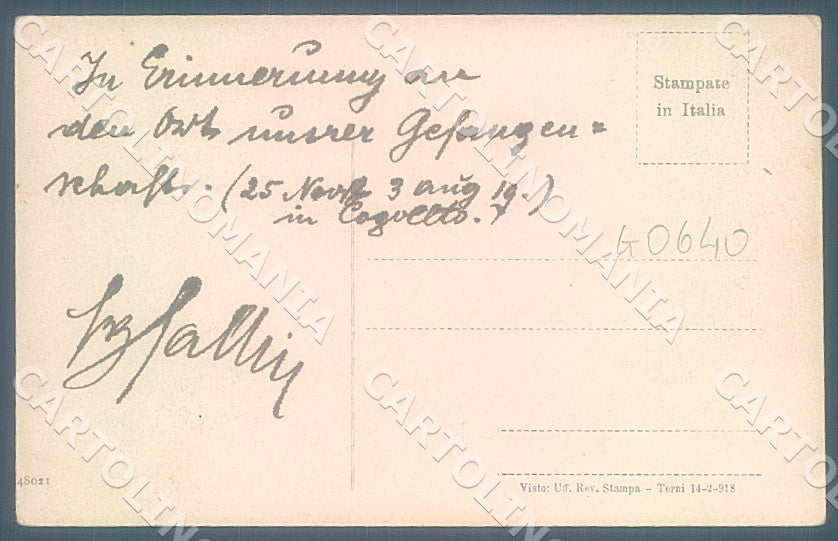 In Erinnerung an
den Ort unsrer Gefangen=
schaft. (25 Nov 3 aug 19.)
in Cogoleto.
Stampate
in Italia
40640
48021
Visto: Uff. Rev. Stampa - Terni 14-2-918
CARTOLINOMANIA
CARTOLINOMANIA
CARTOLINOMANIA
CARTOLINOMANIA